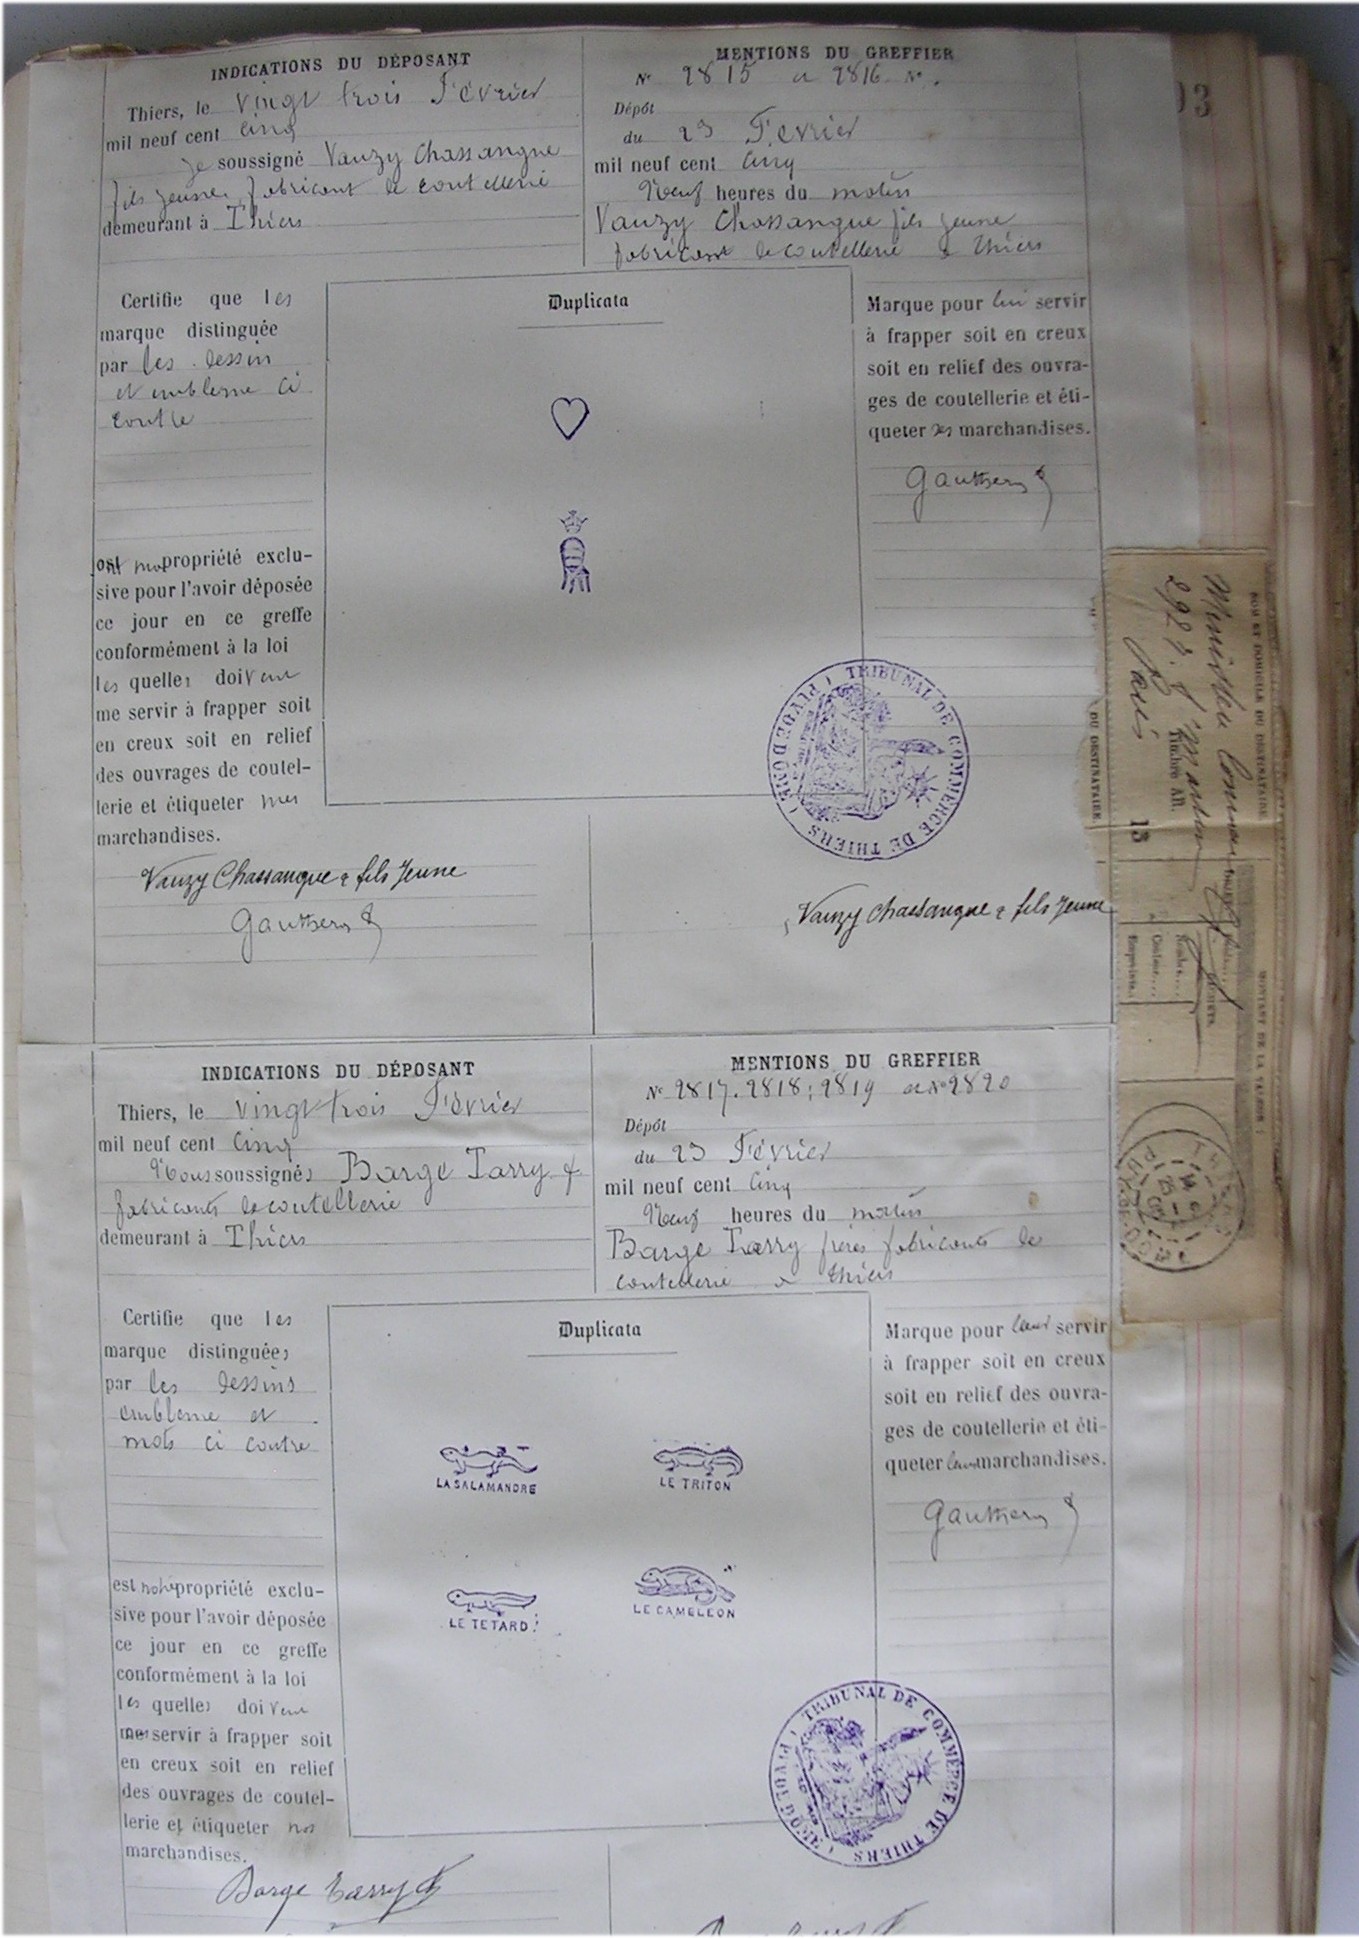 INDICATIONS DU DÉPOSANT
Thiers, le vingt trois Février
mil neuf cent cinq
je soussigné Vauzy Chassangue
fils jeune, fabricant de coutellerie
demeurant à Thiers
MENTIONS DU GREFFIER
No 2815 a 2816 No.
Dépôt
du 23 Février
mil neuf cent cinq
Neuf heures du matin
Vauzy Chassangue fils jeune
fabricant de coutellerie a Thiers
Certifie que les
marque distinguée
par les dessin
et embleme ci
contre
ont ma propriété exclu-
sive pour l'avoir déposée
ce jour en ce greffe
conformément à la loi
les quelles doivent
me servir à frapper soit
en creux soit en relief
des ouvrages de coutel-
lerie et étiqueter mes
marchandises.
Vauzy Chassangue & fils Jeune
Gauthery
Duplicata
Marque pour lui servir
à frapper soit en creux
soit en relief des ouvra-
ges de coutellerie et éti-
queter ses marchandises.
Gauthery
TRIBUNAL DE COMMERCE DE THIERS (PUY DE DOME)
Vauzy Chassangue & fils Jeune
93
NOM ET DOMICILE DU DESTINATAIRE
Paris
Timbre AR.
13
DU DESTINATAIRE
MONTANT DE LA VALEUR
THIERS
PUY-DE-DOME
INDICATIONS DU DÉPOSANT
Thiers, le vingt trois Février
mil neuf cent cinq
Nous soussignés Barge Tarry f
fabricants de coutellerie
demeurant à Thiers
MENTIONS DU GREFFIER
No 2817. 2818; 2819 et No 2820
Dépôt
du 23 Février
mil neuf cent cinq
Neuf heures du matin
Barge Tarry frères fabricants de
coutellerie a Thiers
Certifie que les
marque distinguées
par les dessins
embleme et
mots ci contre
est notre propriété exclu-
sive pour l'avoir déposée
ce jour en ce greffe
conformément à la loi
les quelles doivent
servir à frapper soit
en creux soit en relief
des ouvrages de coutel-
lerie et étiqueter nos
marchandises.
Barge Tarry f
Duplicata
LA SALAMANDRE
LE TRITON
LE TETARD
LE CAMELEON
Marque pour leur servir
à frapper soit en creux
soit en relief des ouvra-
ges de coutellerie et éti-
queter leurs marchandises.
Gauthery
TRIBUNAL DE COMMERCE DE THIERS (PUY DE DOME)